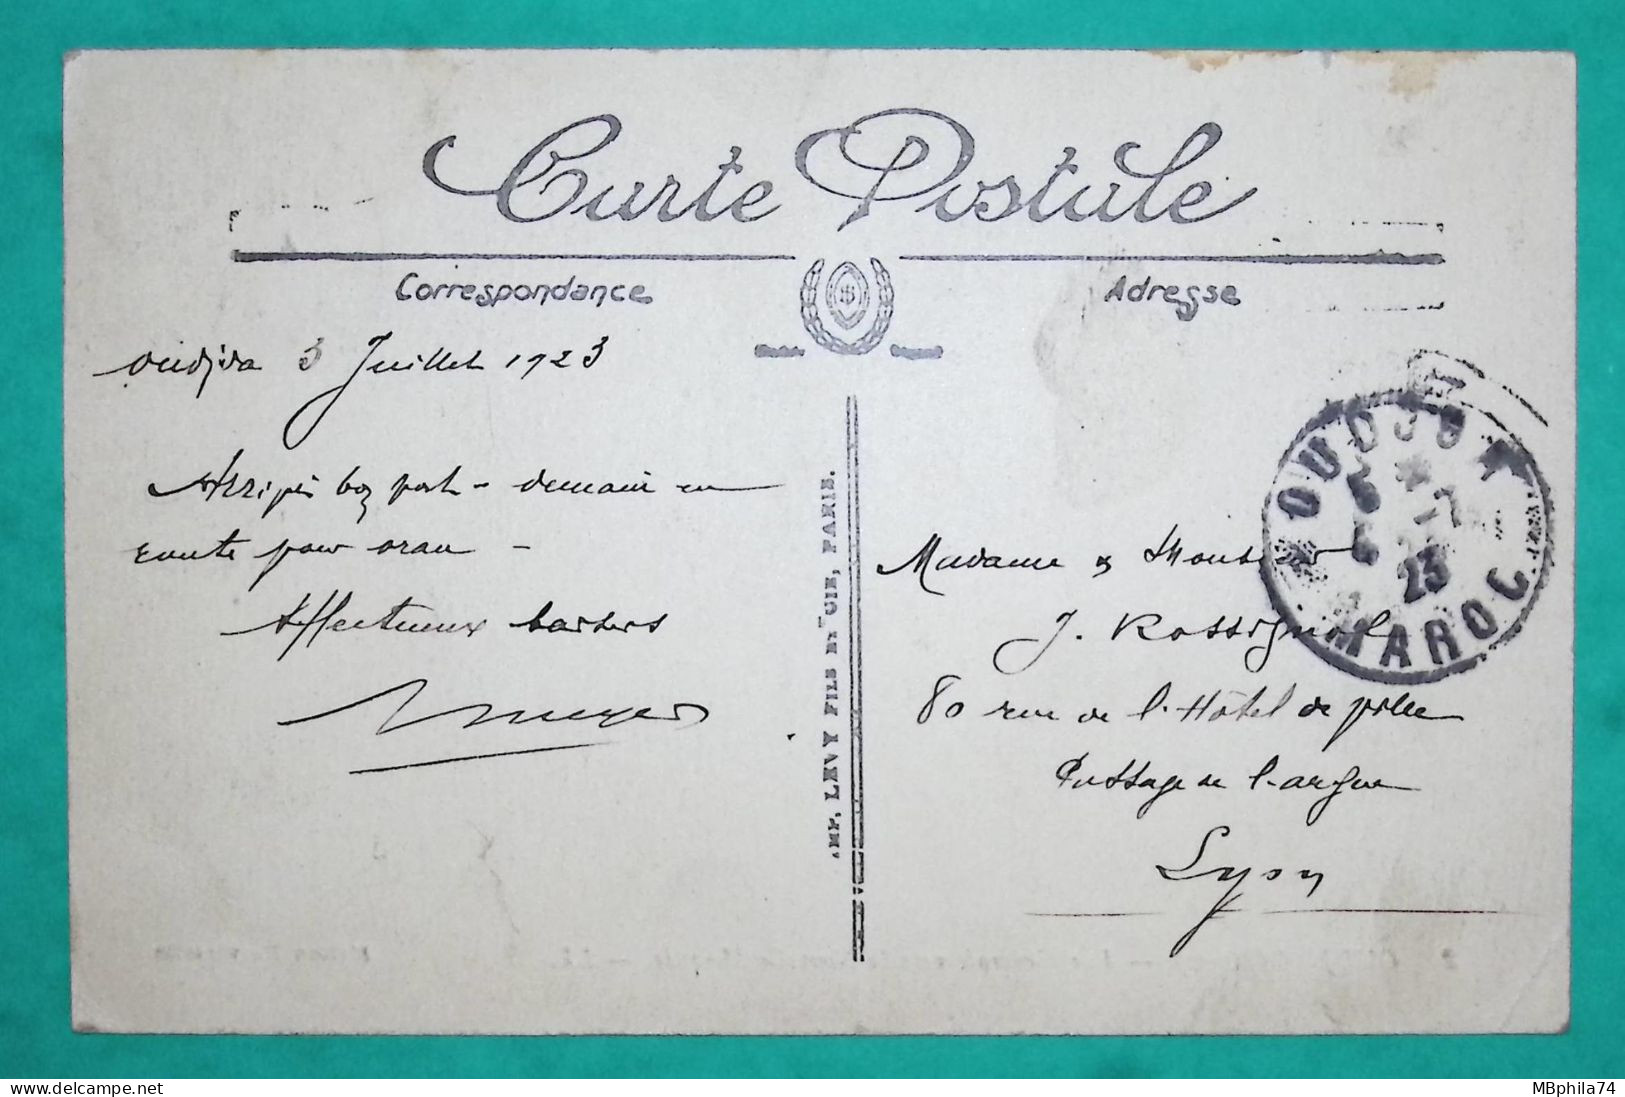 Carte Postale
Correspondance
Adresse
Oudjda 3 Juillet 1923
Arrivés bon port - demain en
route pour oran -
Affectueux baisers
IMP. LEVY FILS ET CIE, PARIS.
OUDJDA
5 - 7
23
MAROC
Madame & Monsieur
J. Rossignol
80 rue de l'Hôtel de ville
Passage de l'argue
Lyon
MBphila74